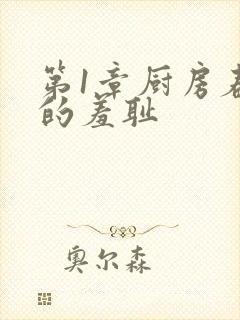 第1章厨房
的羞耻
奥尔森